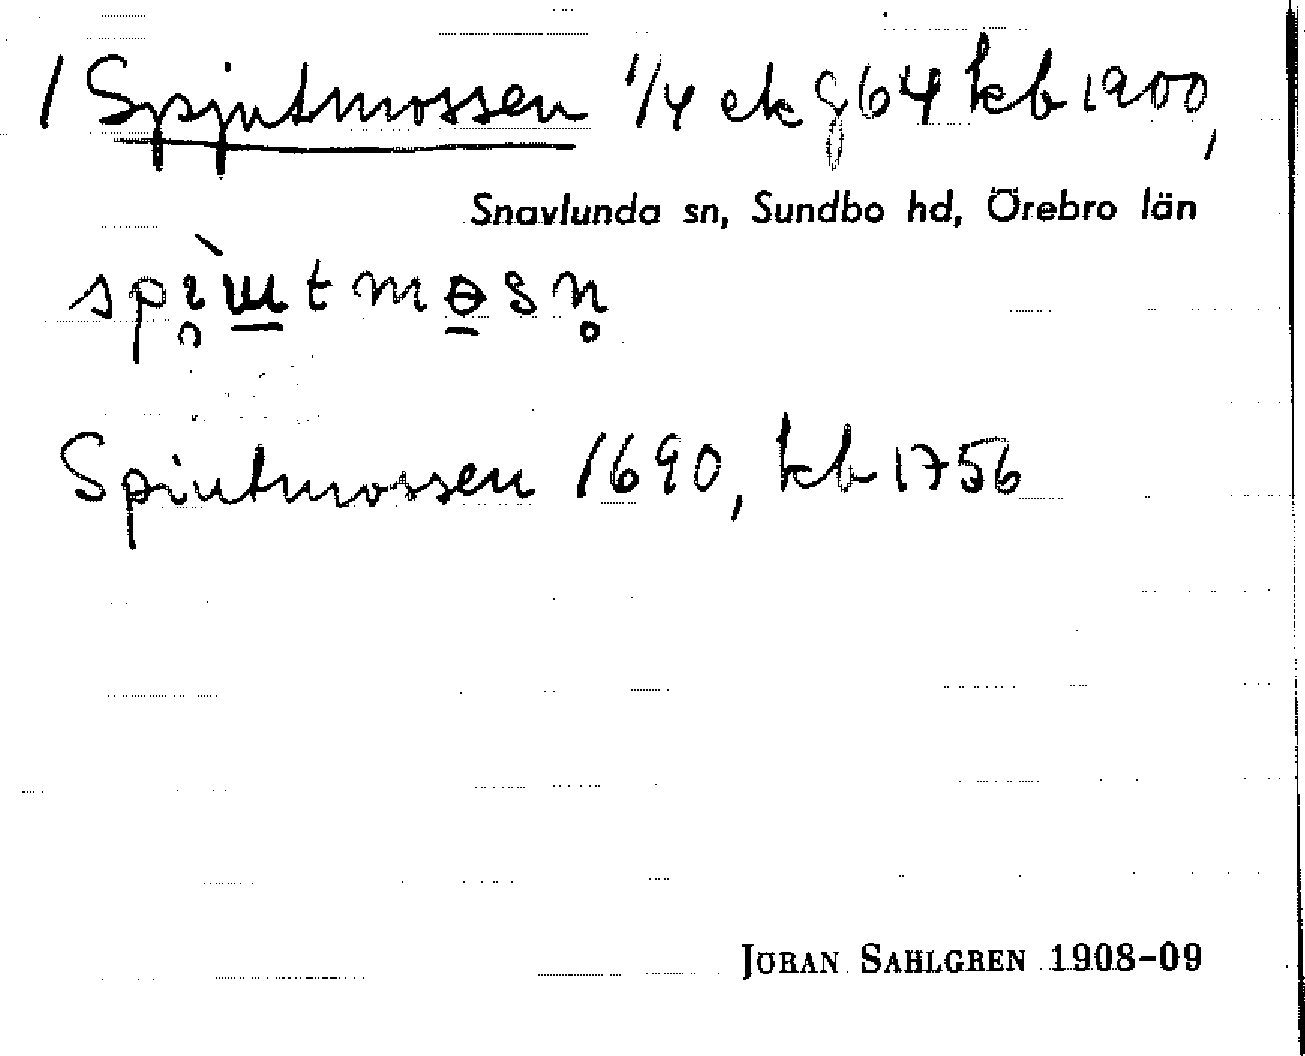 1 Spjutmossen 1/4 ek g 64 kb 1900,
Snavlunda sn, Sundbo hd, Örebro län
Spiutmossen 1690, kb 1756
JÖRAN SAHLGREN 1908-09